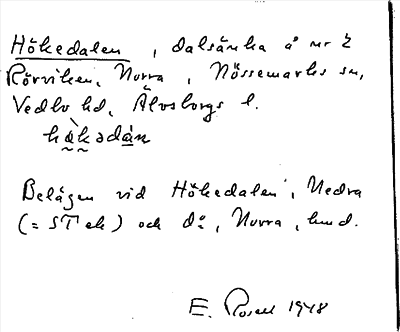 Hökedalen, dalsänka å nr 2
Rörviken, Norra, Nössemarks sn,
Vedbo hd, Älvsborgs l.
hǻkədàn
Belägen vid Hökedalen, Nedra
(= STek) och d:o, Norra, hmd.
E. Rosell 1948